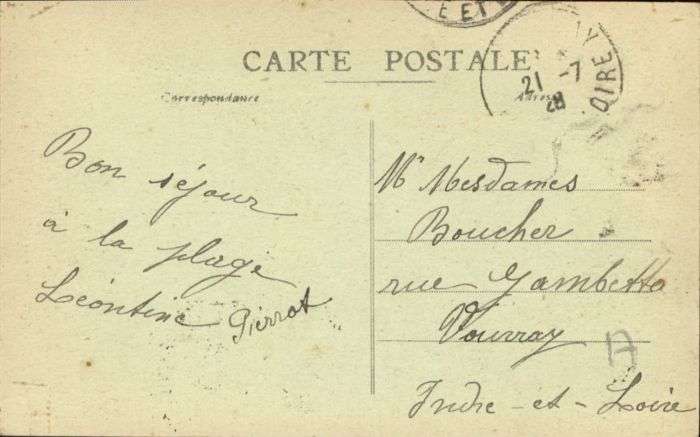 E ET
CARTE POSTALE
AY
21 -7
28
OIRE
Correspondance
Adresse
Bon séjour
à la plage
Léontine Pierrot
Mr Mesdames
Boucher
rue Gambetta
Vouvray
Indre-et-Loire